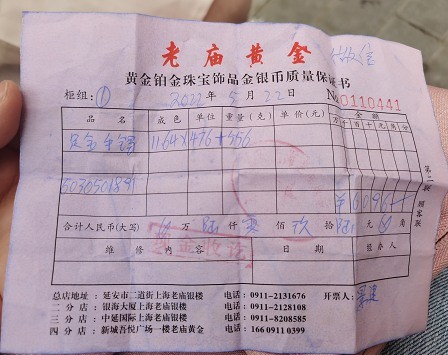 老庙黄金
黄金铂金珠宝饰品金银币质量保证书
柜组：① 2022年5月22日 No 0110441
品名 成色 单位 重量（克） 单价（元） 金额
万 千 百 十 元 角 分
足金手镯 11.64×476+556
5030501891
¥6096
第二联 顾客联
合计人民币（大写） 万陆仟零佰玖拾陆元 角
维修内容 日期 经办人
总店地址：延安市二道街上海老庙银楼 电话：0911-2131676 开票人：
二分店：银海大厦上海老庙银楼 电话：0911-2128108
三分店：中延国际上海老庙银楼 电话：0911-8208585
四分店：新城吾悦广场一楼老庙黄金 电话：166 0911 0399